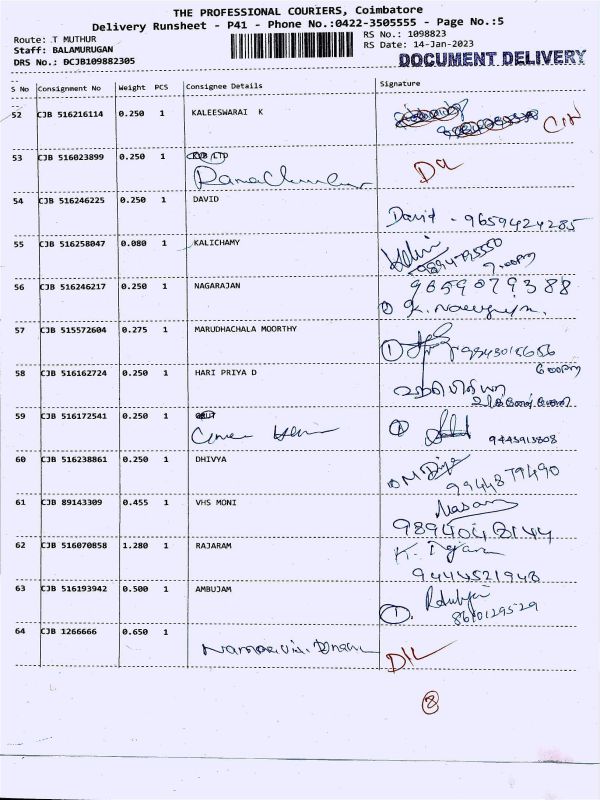 THE PROFESSIONAL COURIERS, Coimbatore
Delivery Runsheet - P41 - Phone No.:0422-3505555 - Page No.:5
Route: .T MUTHUR
Staff: BALAMURUGAN
DRS No.: DCJB109882305
RS No.: 1098823
RS Date: 14-Jan-2023
DOCUMENT DELIVERY
S No Consignment No Weight PCS Consignee Details Signature
52 CJB 516216114 0.250 1 KALEESWARAI K
53 CJB 516023899 0.250 1
54 CJB 516246225 0.250 1 DAVID David - 9659424285
55 CJB 516258047 0.080 1 KALICHAMY
7.00pm
56 CJB 516246217 0.250 1 NAGARAJAN 9659079388
57 CJB 515572604 0.275 1 MARUDHACHALA MOORTHY 1
58 CJB 516162724 0.250 1 HARI PRIYA D
59 CJB 516172541 0.250 1
9445913808
60 CJB 516238861 0.250 1 DHIVYA
9944879490
61 CJB 89143309 0.455 1 VHS MONI
9894048144
62 CJB 516070858 1.280 1 RAJARAM
9444521948
63 CJB 516193942 0.500 1 AMBUJAM
1 8610129529
64 CJB 1266666 0.650 1
D/L
8